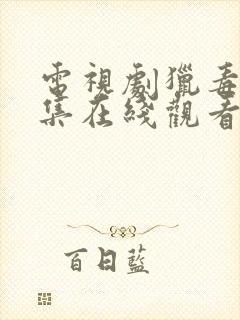 電視劇獵毒
集在綫觀看
百日藍